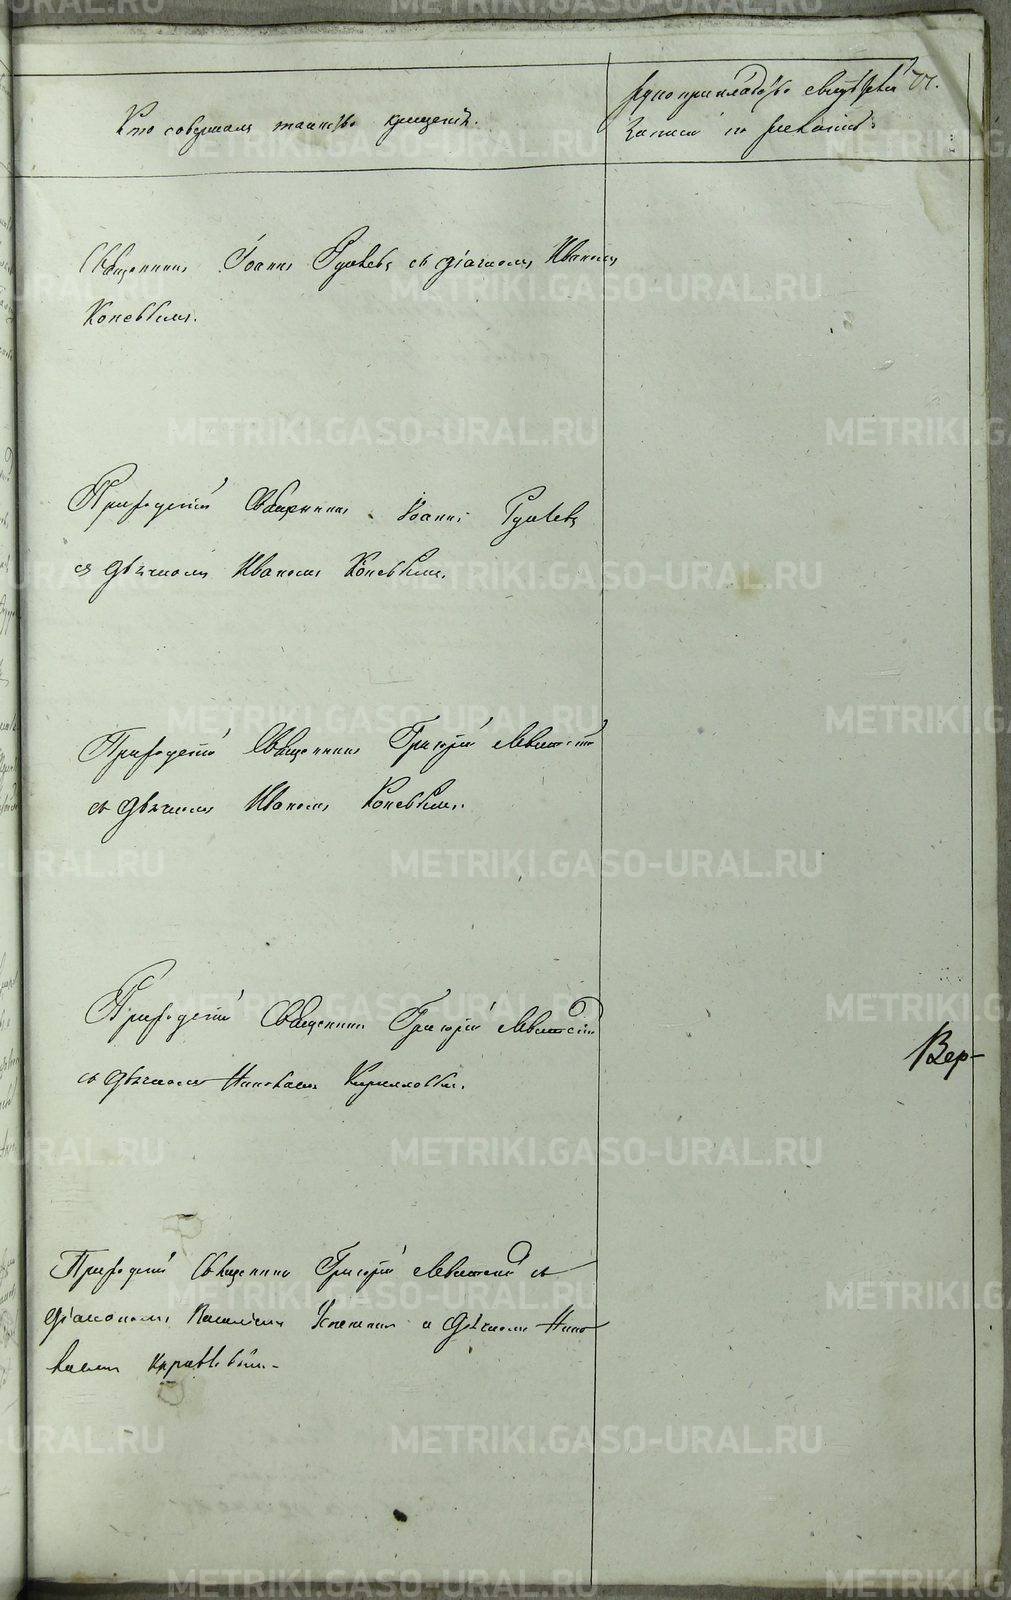 Кто совершалъ таинство крещенія.
Рукоприкладство свидѣтелей
записи по желанію:
77.
Священникъ Іоаннъ Гуляевъ съ дьячкомъ Иваномъ
Коневымъ.
Приходскій Священникъ Іоаннъ Гуляевъ
съ дьячкомъ Иваномъ Коневымъ.
Приходскій Священникъ Григорій Левитскій
съ дьячкомъ Иваномъ Коневымъ.
Приходскій Священникъ Григорій Левитскій
съ дьячкомъ Николаемъ Кирилловымъ.
Вер-
Приходскій Священникъ Григорій Левитскій съ
діакономъ Василіемъ и дьячкомъ Нико
лаемъ
METRIKI.GASO-URAL.RU